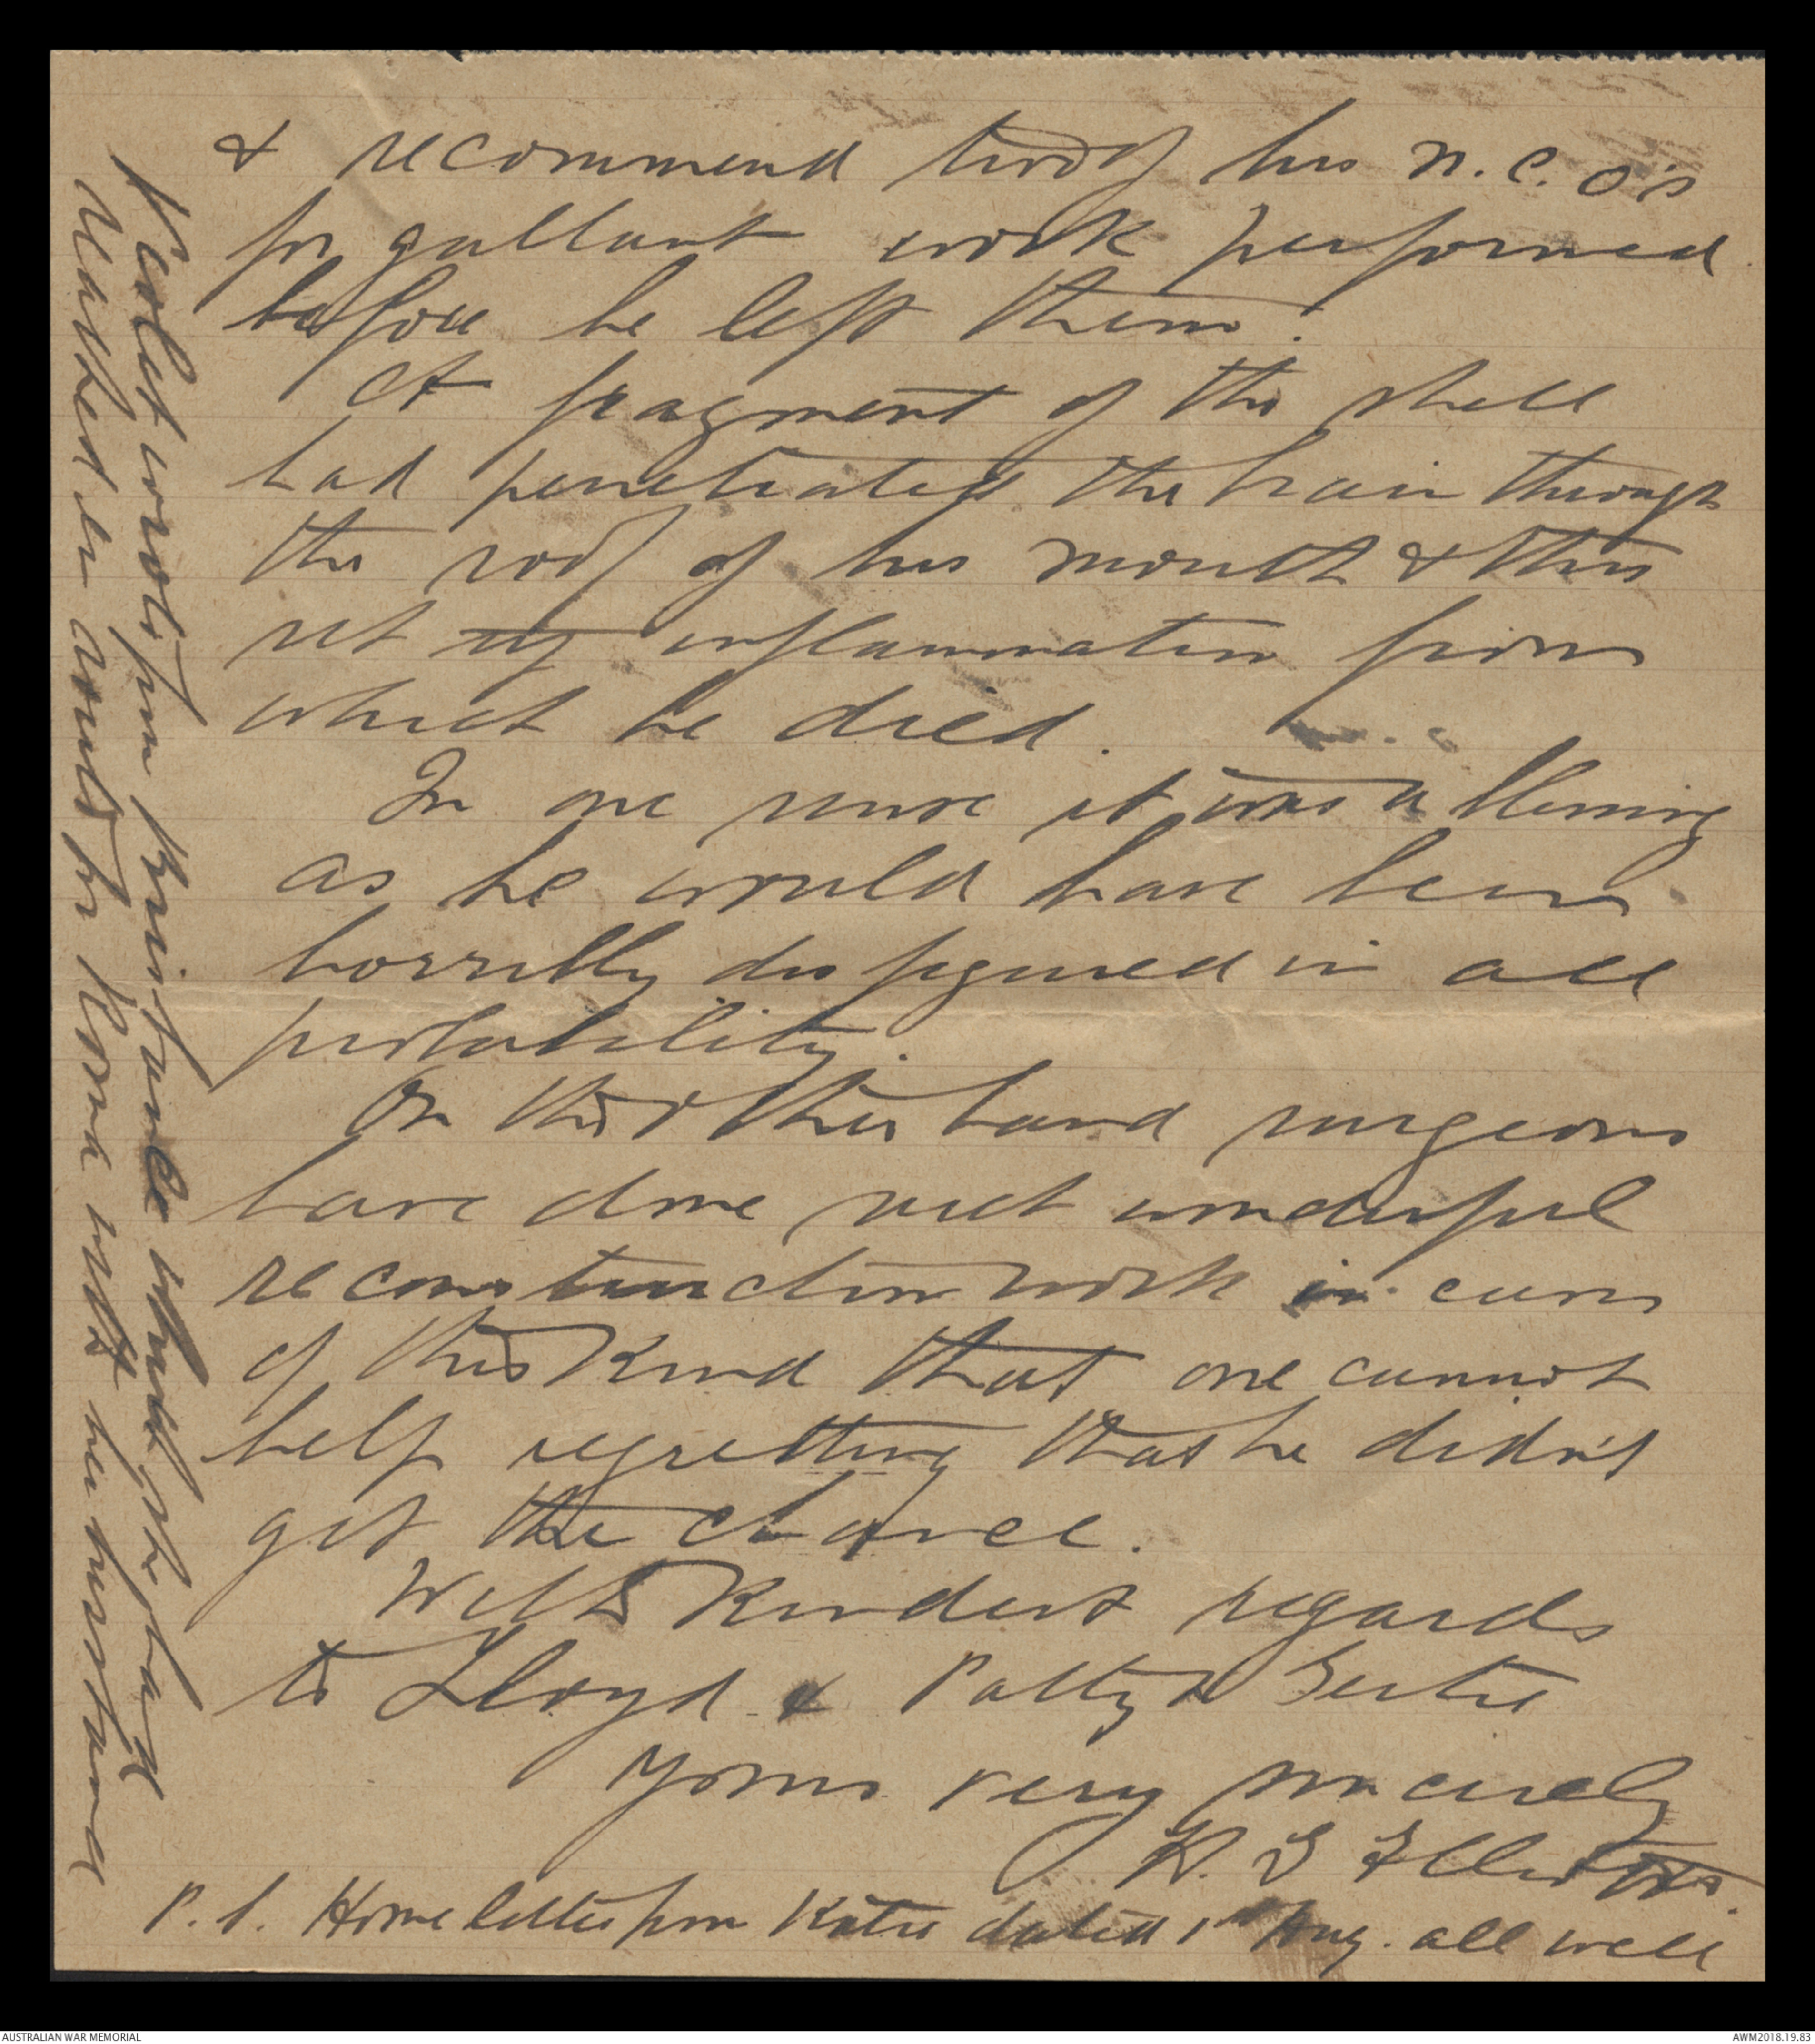 & recommend two of his N.C.O's
for gallant work performed
before he left them.
A fragment of the shell
had penetrated the brain through
the roof of his mouth & this
set up inflammation from
which he died.
In one sense it was a blessing
as he would have been
horribly disfigured in all
probability.
On the other hand surgeons
have done such wonderful
reconstruction work in cases
of this kind that one cannot
help regretting that he didn't
get the chance.
With Kindest regards
to Lloyd & Patty & Gertie
Yours very sincerely
H. E Elliott
P.S. Home letter from Katie dated 1st Aug. all well
Violet wrote from Penzance which she had
reached en route for Home with her husband
AUSTRALIAN WAR MEMORIAL
AWM2018.19.83